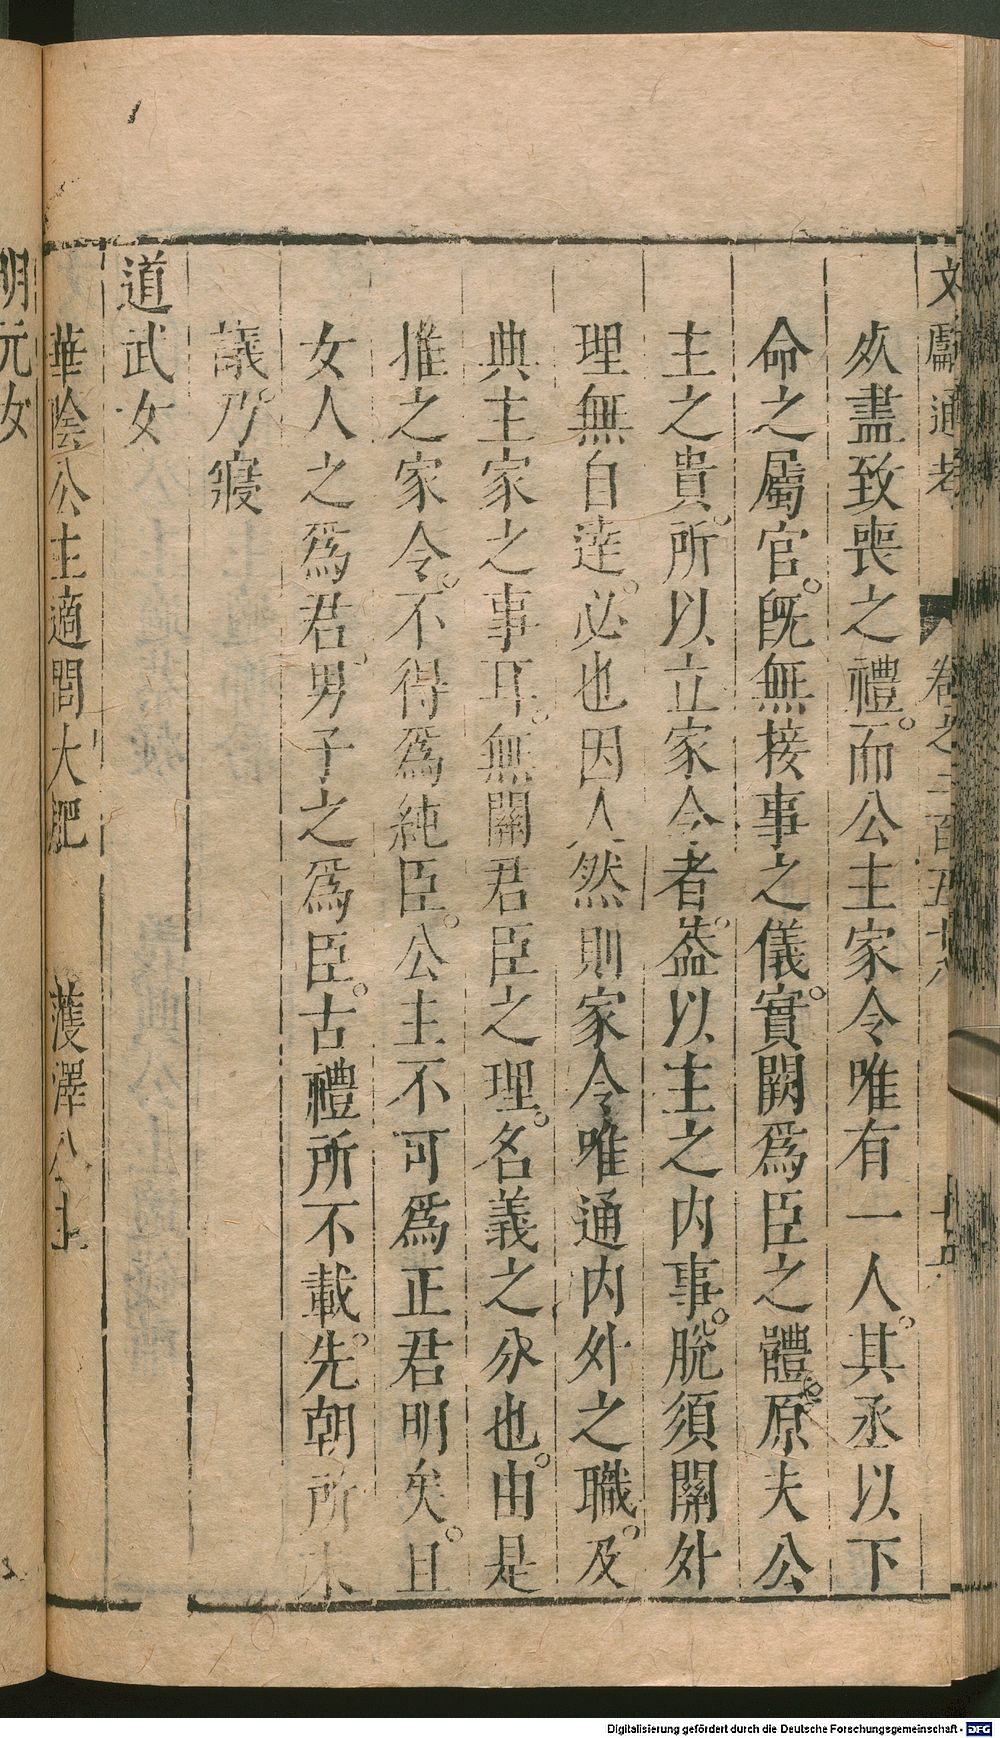 文獻通考 卷之二百五十八
必盡致喪之禮而公主家令唯有一人其丞以下
命之屬官既無接事之儀實闕爲臣之體原夫公
主之貴所以立家令者葢以主之内事脫須關外
理無自達必也因人然則家令唯通内外之職及
典主家之事耳無關君臣之理名義之分也由是
推之家令不得爲純臣公主不可爲正君明矣且
女人之爲君男子之爲臣古禮所不載先朝所未
議乃寢
道武女
華陰公主適閭大肥 濩澤公主
明元女
Digitalisierung gefördert durch die Deutsche Forschungsgemeinschaft - DFG